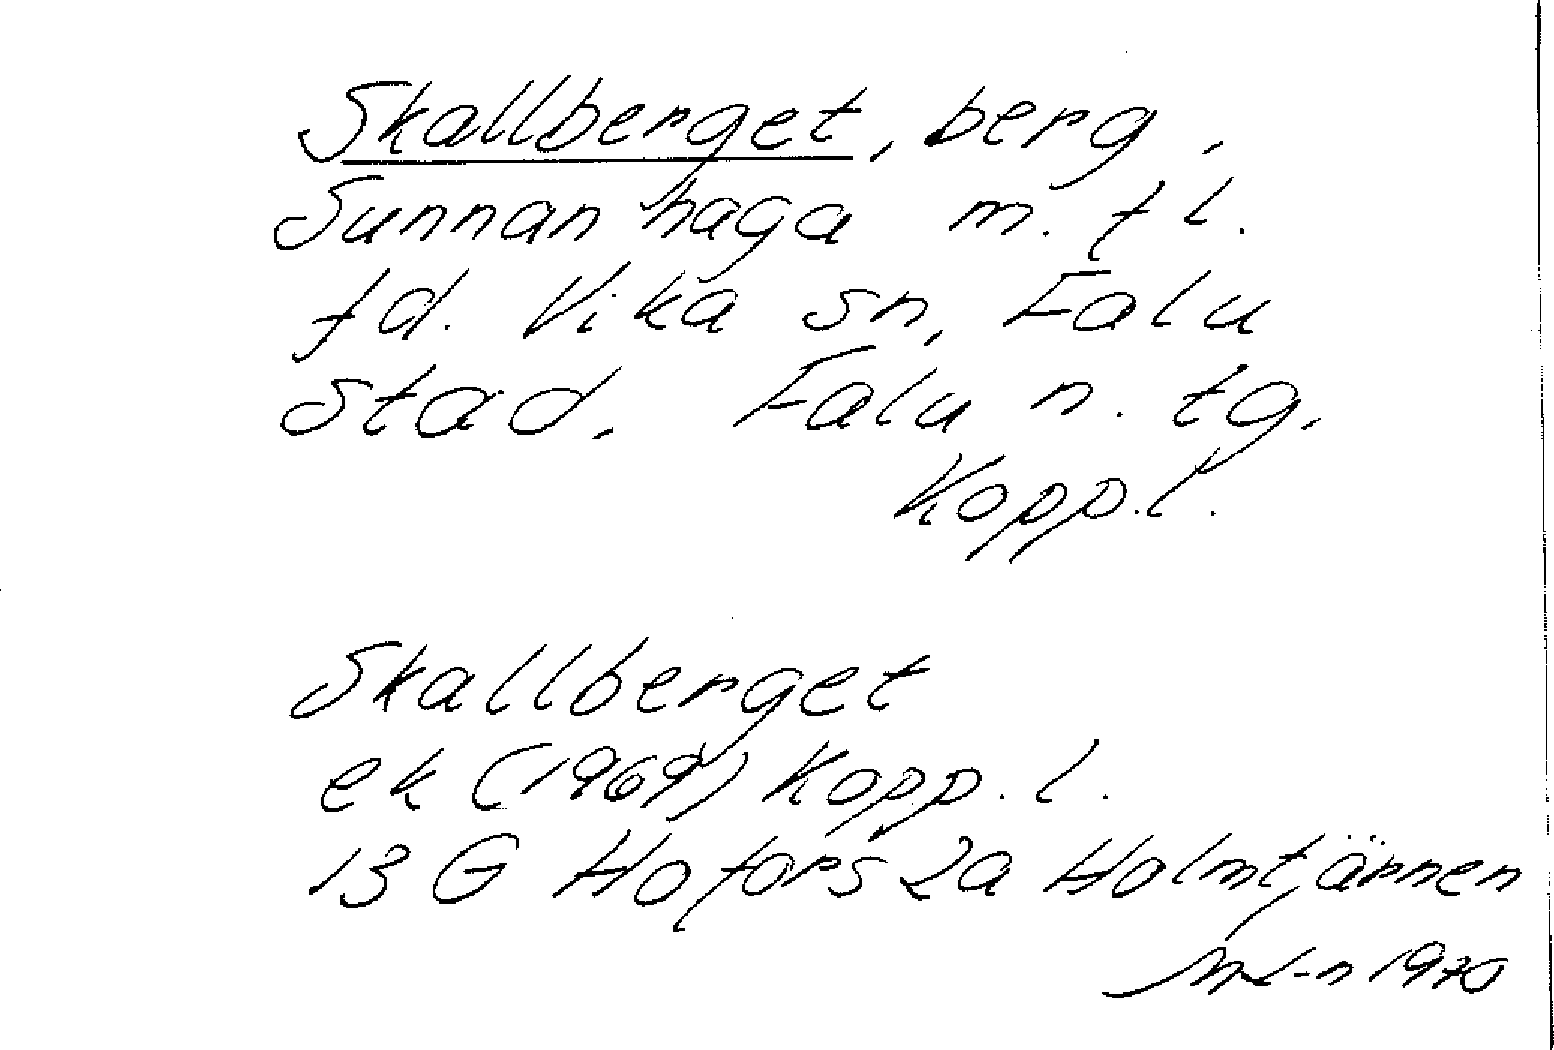 Skallberget, berg,
Sunnanhaga m. fl.
fd. Vika sn, Falu
stad. Falu n. tg.
Kopp.l.
Skallberget
ek (1969) Kopp. l.
13 G Hofors 2a Holmtjärnen
1970